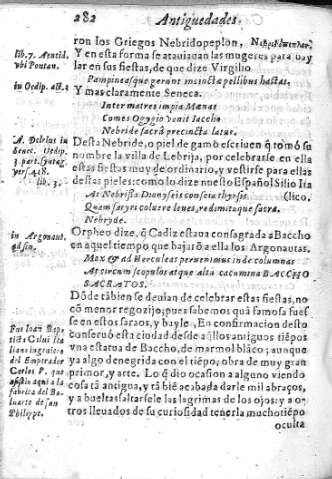 282
Antiguedades.
ron los Griegos Nebridopeplon,
lib. 7. Aeneid.
Y en esta forma se atauiauan las mugeres para bay
vbi Pontan.
lar en sus fiestas, de que dize Virgilio
Pampineasque gerunt incincta pellibus hastas.
in Oedip. act. 2
Y mas claramente Seneca.
Inter matres impia Mænas
Comes Ogygio venit Iaccho
Nebride sacra præcincta latus.
A. Delrius in
Desta Nebride, o piel de gamo escriuen q̃ tomó su
Oedip.
nombre la villa de Lebrija, por celebrarse en ella
3. part. syntag.
estas fiestas muy de ordinario, y vestirse para ellas
vers. 418.
lib. 3.
destas pieles: como lo dize nuestro Español Silio Ita
At Nebrissa Dionysæis conscia thyrsis
(lico,
Quam satyri coluere leues, redimitaque sacra.
Nebryde.
in Argonaut.
Orpheo dize, q̃ Cadiz estaua consagrada a Baccho
ad fin.
en aquel tiempo que bajaró a ella los Argonautas.
Mox & ad Herculeas peruenimus inde columnas
At circum scopulos atque alta cacumina BACCHO
SACRATOS.
Dóde tábien se deuian de celebrar estas fiestas, no
có menor regozijo, pues sabemos quá famosa fues
Fue Ioan Bap
se en estos saraos, y bayle. En confirmacion desto
tista Calui Ita
conseruó esta ciudad desde aq̃llos antiguos tiépos
liano ingeniero
vna estatua de Baccho, de marmol bláco; aunque
del Emperador
ya algo denegrida con el tiépo; obra de muy gran
Carlos V. que
primor, y arte. Lo q̃ dio ocasion a alguno viendo
assistia aqui a la
fabrica del Ba
cosa tá antigua, y tá bié acabada darle mil abraços,
luarte de san
y a bueltas saltarsele las lagrimas de los ojos: y a o-
Philippe.
tros lleuados de su curiosidad tenerla mucho tiépo
oculta